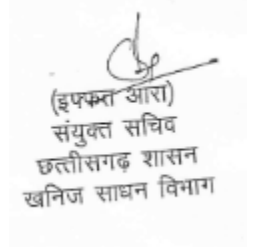 (इफ्फत आरा)
संयुक्त सचिव
छत्तीसगढ़ शासन
खनिज साधन विभाग